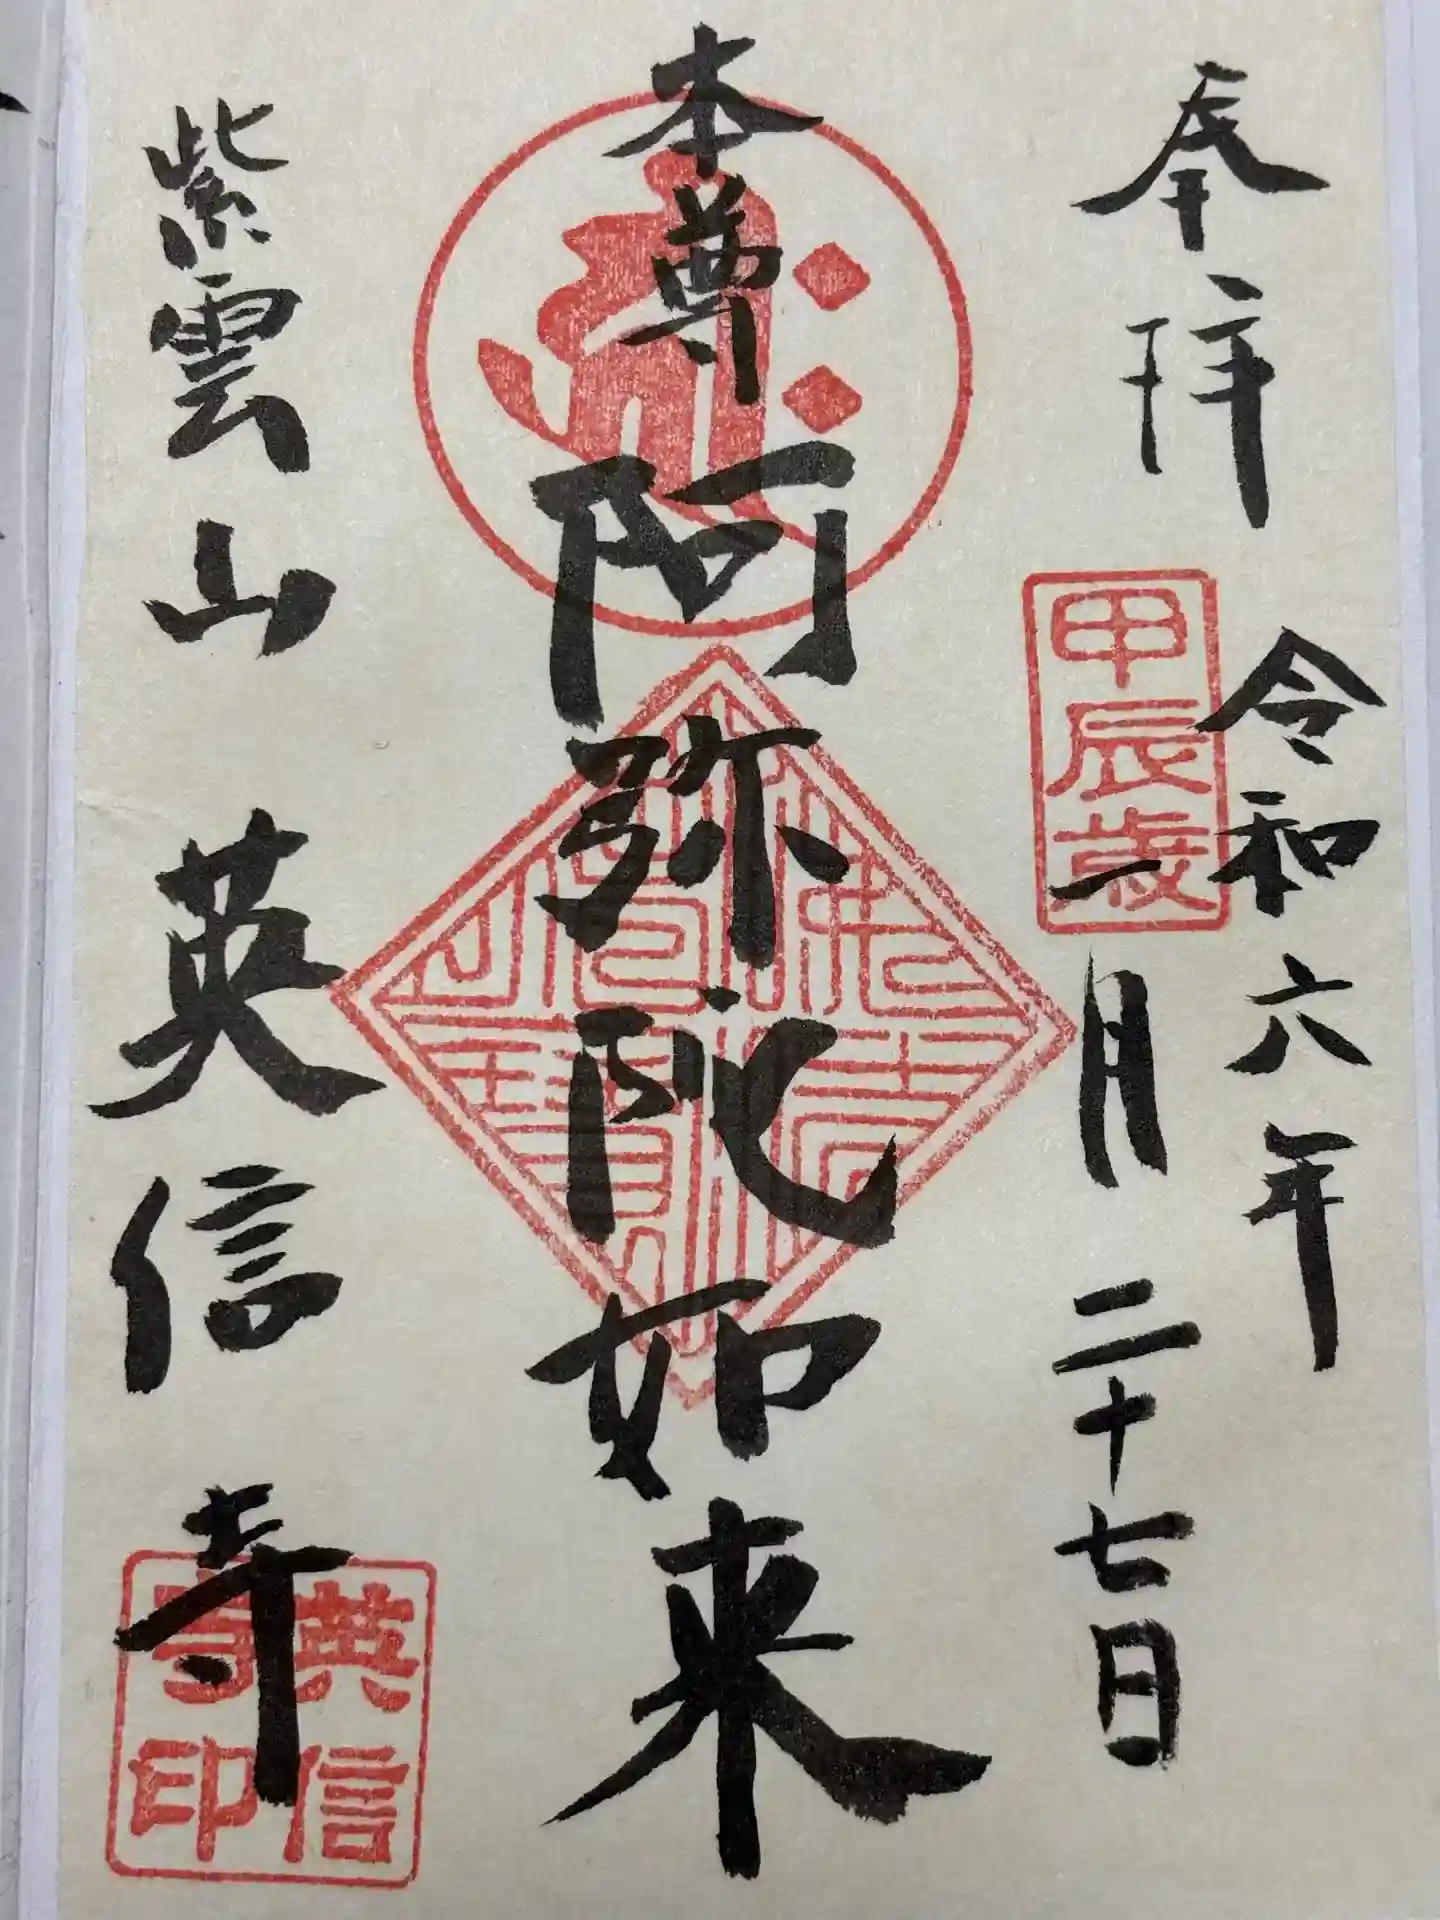 奉拝
甲辰歳
令和六年
一月二十七日
本尊
阿弥陀如来
紫雲山 英信寺
英信寺印